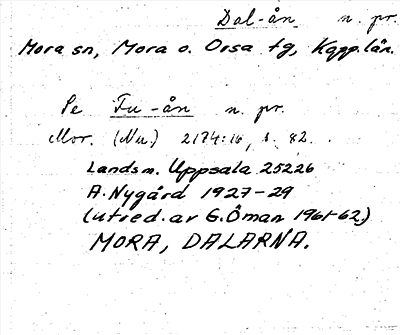 Dal-ån n. pr.
Mora sn, Mora o. Orsa tg, Kopp.län.
Se Fu-ån n. pr.
Mor. (Nu.) 2174:16, s. 82.
Landsm. Uppsala 25226
A. Nygård 1927-29
(utred. av G. Öman 1961-62)
MORA, DALARNA.